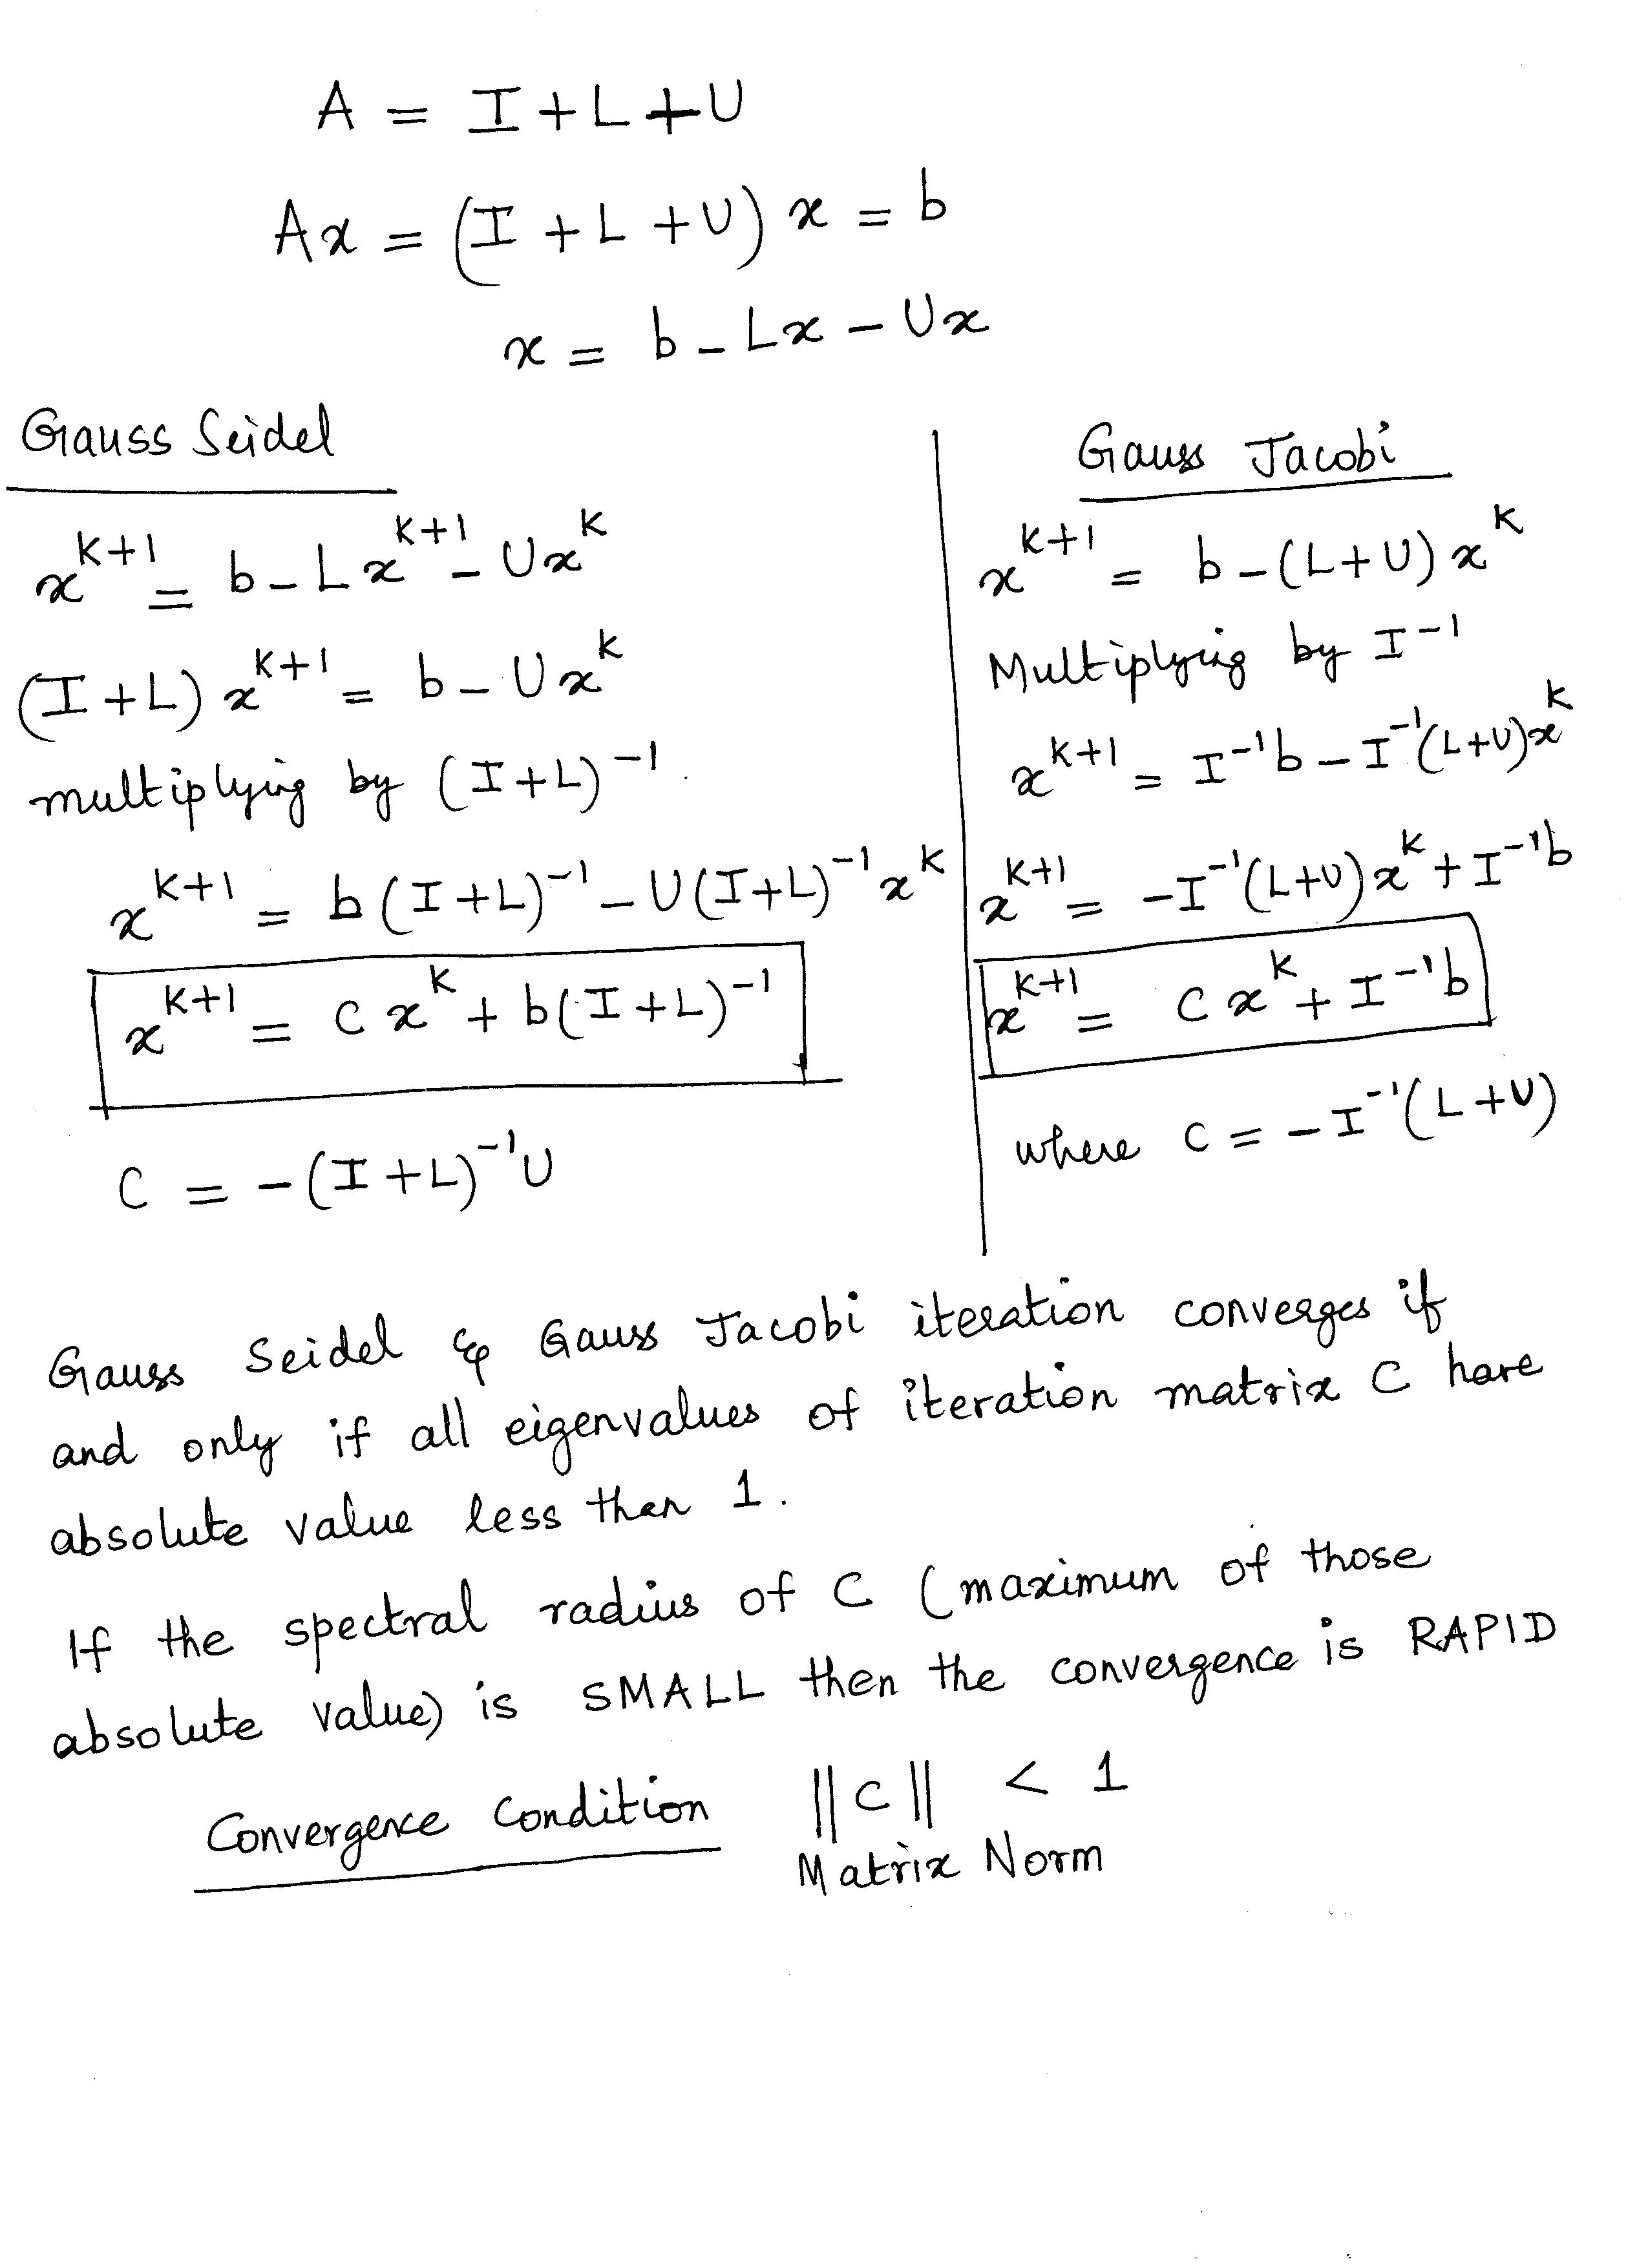 A = I + L + U
Ax = (I + L + U) x = b
x = b - Lx - Ux
Gauss Seidel
x^{k+1} = b - Lx^{k+1} - Ux^{k}
(I + L) x^{k+1} = b - Ux^{k}
multiplying by (I+L)^{-1}.
x^{k+1} = b (I+L)^{-1} - U(I+L)^{-1} x^{k}
x^{k+1} = C x^{k} + b(I+L)^{-1}
C = -(I+L)^{-1}U
Gauss Jacobi
x^{k+1} = b - (L+U) x^{k}
Multiplying by I^{-1}
x^{k+1} = I^{-1}b - I^{-1}(L+U)x^{k}
x^{k+1} = -I^{-1}(L+U)x^{k} + I^{-1}b
x^{k+1} = C x^{k} + I^{-1}b
where C = -I^{-1}(L+U)
Gauss Seidel & Gauss Jacobi iteration converges if
and only if all eigenvalues of iteration matrix C have
absolute value less than 1.
If the spectral radius of C (maximum of those
absolute value) is SMALL then the convergence is RAPID
Convergence Condition ||C|| < 1
Matrix Norm